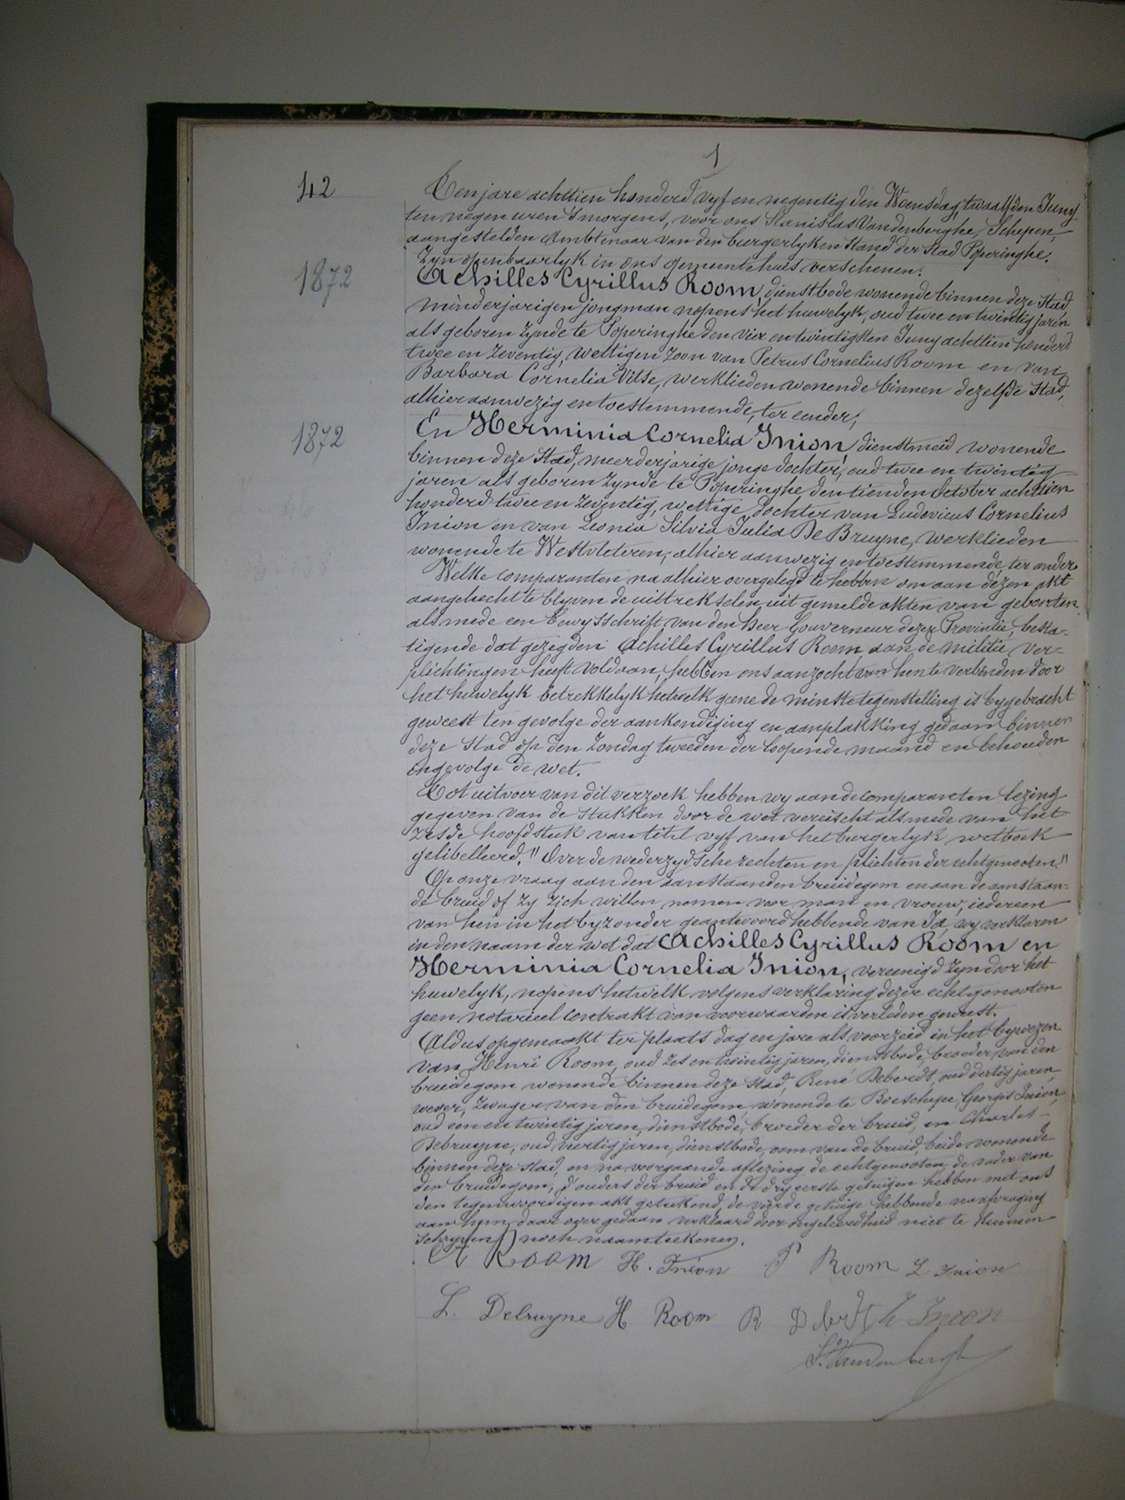 1
42
Ten jare achttien honderd vyf en negentig den Woensdag, twaalfden Juny
ten negen uren 's morgens, voor ons Stanislas Vandenberghe, Schepen,
aangestelden Ambtenaar van den burgerlyken stand der Stad Poperinghe.
Zyn openbaarlyk in ons gemeentehuis verschenen:
1872
Achilles Cyrillus Room, dienstbode wonende binnen deze Stad
minderjarigen jongman nopens het huwelyk, oud twee en twintig jaren
als geboren zynde te Poperinghe den vier en twintigsten Juny achttien honderd
twee en zeventig, wettigen zoon van Petrus Cornelius Room en van
Barbara Cornelia Vilse, werklieden wonende binnen dezelfde Stad,
alhier aanwezig en toestemmende, ter eender;
1872
En Herminia Cornelia Inion, dienstmeid wonende
binnen deze Stad, meerderjarige jonge dochter, oud twee en twintig
jaren als geboren zynde te Poperinghe den tienden October achttien
honderd twee en zeventig, wettige dochter van Ludovicus Cornelius
Inion en van Leonia Silvia Julia De Bruyne, werklieden
wonende te Westvleteren, alhier aanwezig en toestemmende, ter ander.
Welke comparanten na alhier overgelegd te hebben om aan dezen akt
aangehecht te blyven de uittreksels uit gemelde akten van geboorten,
alsmede een bewysschrift van den Heer Gouverneur dezer Provintie, besta-
tigende dat gezegden Achilles Cyrillus Room aan de militie ver-
plichtingen heeft voldaan, hebben ons aanzocht van hen te verbinden door
het huwelyk betrekkelyk hetwelk geene de minste tegenstelling is bygebracht
geweest ten gevolge der aankondiging en aanplakking gedaan binnen
deze Stad op den Zondag tweeden der loopende maand en behouden
ingevolge de wet.
Tot uitvoer van dit verzoek hebben wy aan de comparanten lezing
gegeven van de stukken door de wet vereischt alsmede van het
zesde hoofdstuk van titel vyf van het burgerlyk wetboek
gelibelleerd, "Over de wederzydsche rechten en plichten der echtgenooten."
Op onze vraag aan den aanstaanden bruidegom en aan de aanstaan-
de bruid of zy zich willen nemen voor man en vrouw, iedereen
van hen in het byzonder geantwoord hebbende van Ja, wy verklaren
in den naam der wet dat Achilles Cyrillus Room en
Herminia Cornelia Inion, vereenigd zyn door het
huwelyk, nopens hetwelk volgens verklaring dezer echtgenooten
geen notarieel contrakt van voorwaarden is verleden geweest.
Aldus opgemaakt ter plaats dag en jare als voorzeid in het bywezen
van Henri Room, oud zes en twintig jaren, dienstbode, broeder van den
bruidegom wonende binnen deze Stad, René Deberdt, oud dertig jaren,
wever, zwager van den bruidegom wonende te Boeschepe, Georges Inion,
oud een en twintig jaren, dienstbode, broeder der bruid, en Charles
Debruyne, oud veertig jaren, dienstbode, oom van de bruid, beide wonende
binnen deze stad, en na voorgaande aflezing de echtgenooten, de vader van
den bruidegom, d'ouders der bruid en de dry eerste getuigen hebben met ons
den tegenwoordigen akt geteekend, de vierde getuige hebbende na afvraging
aan hem daar over gedaan verklaard door ongeleerdheid niet te kunnen
schryven noch naamteekenen.
A Room H. Inion P Room L Inion
L. Debruyne H Room R Deberdt Inion
S. Vandenberghe